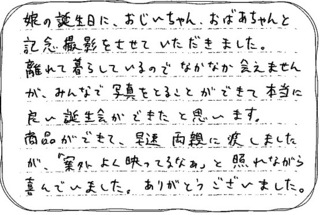 娘の誕生日に、おじいちゃん、おばあちゃんと
記念撮影をさせていただきました。
離れて暮らしているのでなかなか会えません
が、みんなで写真をとることができて本当に
良い誕生会ができたと思います。
商品ができて、早速両親に渡しました
が、「案外よく映ってるなぁ」と照れながら
喜んでいました。ありがとうございました。